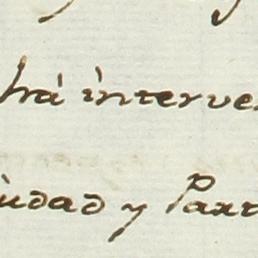 hrà interve
iudad y Part